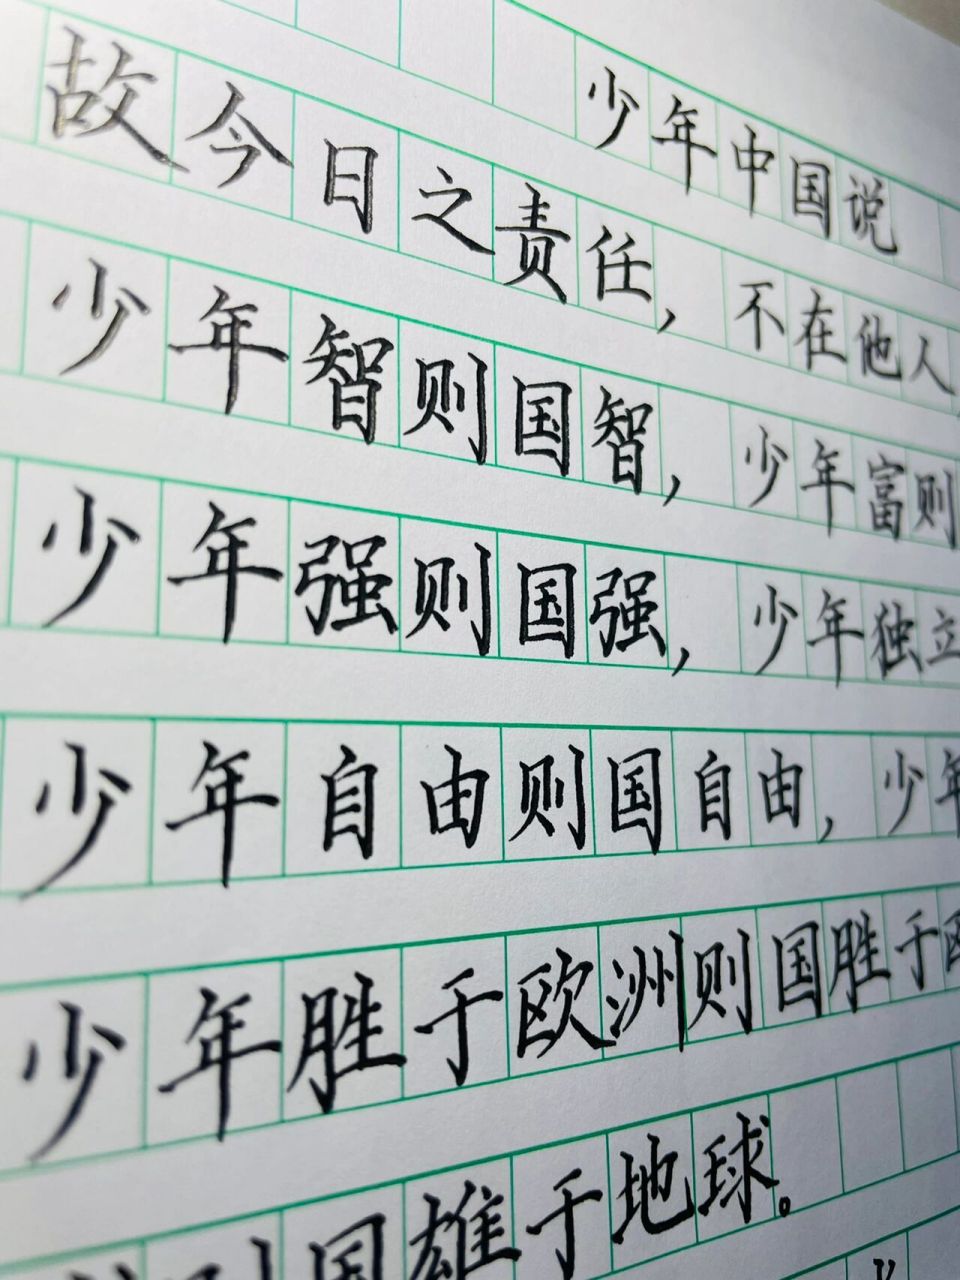 少年中国说
故今日之责任，不在他人
少年智则国智，少年富则
少年强则国强，少年独立
少年自由则国自由，少年
少年胜于欧洲则国胜于欧
则国雄于地球。